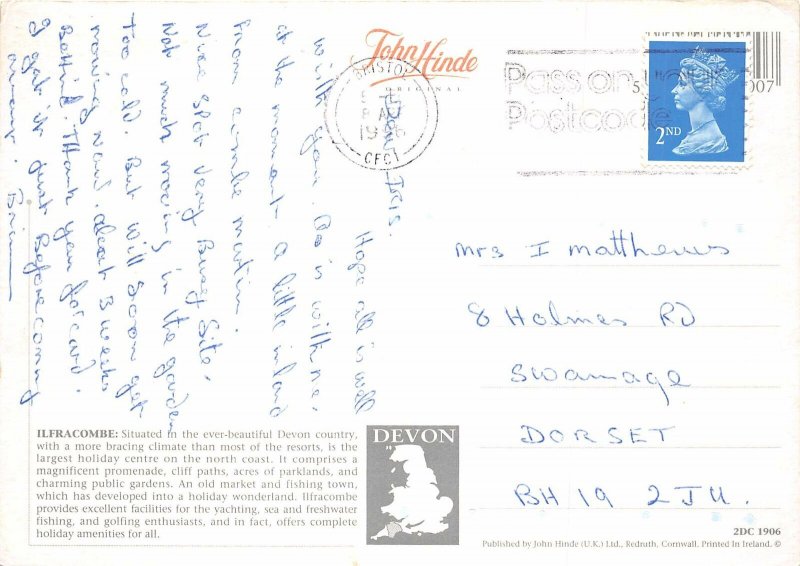 John Hinde
ORIGINAL
BRISTOL
1986
CFCT
Pass on your
Postcode
2ND
007
Dear Iris.
Hope all is well
with you. As is with me.
at the moment. A little inland
from combe martin.
Nice spot very Busy Site.
Not much moving in the garden
Too cold. But will soon get
moving now. About 3 weeks
Behind. Thank you for card.
I got it just Before coming
away. Brian
Mrs I matthews
8 Holmes RD
Swanage
DORSET
BH 19 2JU.
ILFRACOMBE: Situated in the ever-beautiful Devon country,
with a more bracing climate than most of the resorts, is the
largest holiday centre on the north coast. It comprises a
magnificent promenade, cliff paths, acres of parklands, and
charming public gardens. An old market and fishing town,
which has developed into a holiday wonderland. Ilfracombe
provides excellent facilities for the yachting, sea and freshwater
fishing, and golfing enthusiasts, and in fact, offers complete
holiday amenities for all.
DEVON
2DC 1906
Published by John Hinde (U.K.) Ltd., Redruth, Cornwall. Printed In Ireland. ©